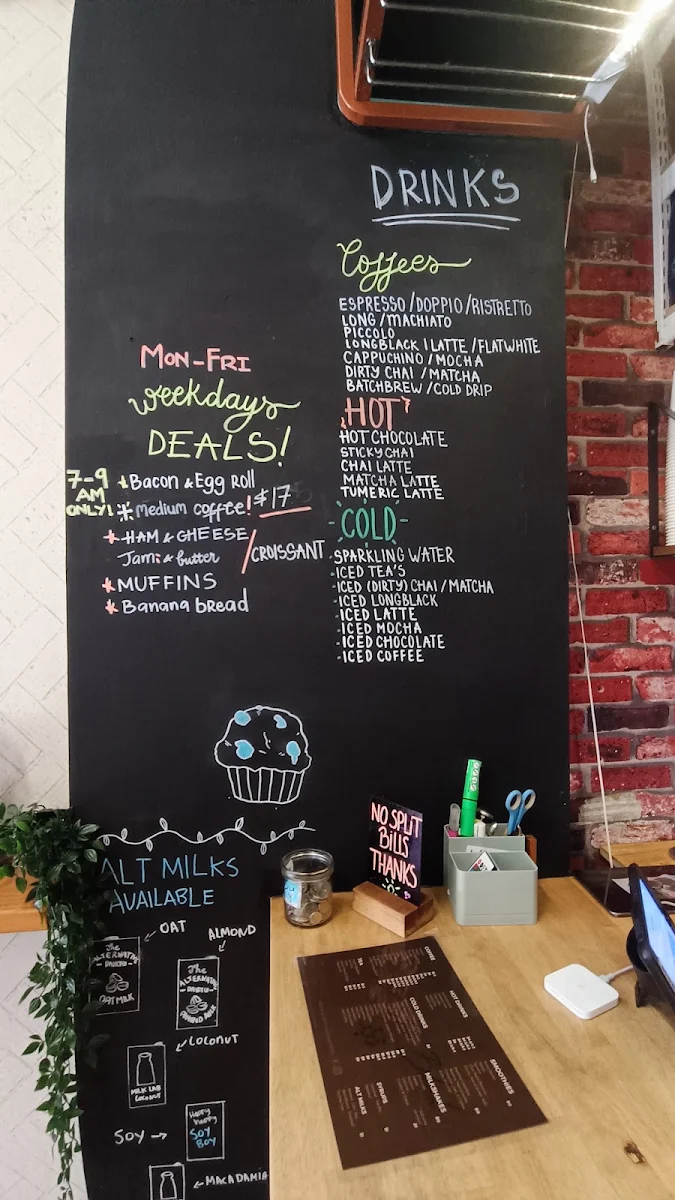 DRINKS
Coffees
ESPRESSO/DOPPIO/RISTRETTO
LONG/MACHIATO
PICCOLO
LONGBLACK | LATTE/FLATWHITE
CAPPUCHINO/MOCHA
DIRTY CHAI/MATCHA
BATCHBREW/COLD DRIP
HOT
HOT CHOCOLATE
STICKY CHAI
CHAI LATTE
MATCHA LATTE
TUMERIC LATTE
-COLD-
-SPARKLING WATER
-ICED TEA'S
-ICED (DIRTY) CHAI/MATCHA
-ICED LONGBLACK
-ICED LATTE
-ICED MOCHA
-ICED CHOCOLATE
-ICED COFFEE
MON-FRI
weekdays
DEALS!
7-9
AM
ONLY!
Bacon & Egg Roll
medium coffee! $17
HAM & CHEESE
Jam & butter
/CROISSANT
MUFFINS
Banana bread
ALT MILKS
AVAILABLE
OAT
ALMOND
The
ALTERNATIVE
DAIRY
OAT MILK
The
ALTERNATIVE
DAIRY
COCONUT
MILK LAB
COCONUT
SOY
Happy
Happy
SOY
BOY
MACADAMIA
NO SPLIT
BILLS
THANKS
COFFEE
TEA
HOT DRINKS
COLD DRINKS
SMOOTHIES
MILKSHAKES
SYRUPS
ALT MILKS